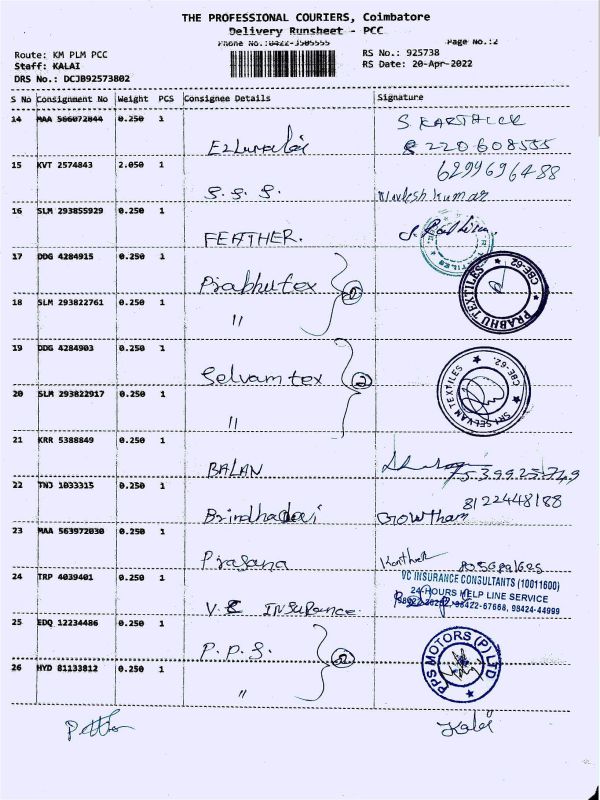 THE PROFESSIONAL COURIERS, Coimbatore
Delivery Runsheet - PCC
Phone No.:0422-3505555
Page No.:2
Route: KM PLM PCC
RS No.: 925738
Staff: KALAI
RS Date: 20-Apr-2022
DRS No.: DCJB92573802
S No Consignment No Weight PCS Consignee Details Signature
14 MAA 566072844 0.250 1
S. KARTHICK
15 KVT 2574843 2.050 1
6299696488
S. S. S.
16 SLM 293855929 0.250 1
FEATHER.
17 DDG 4284915 0.250 1
Prabhutex
2
PRABHU TEXTILES CBE-62
18 SLM 293822761 0.250 1
"
19 DDG 4284903 0.250 1
Selvamtex
2
SRI SELVAM TEXTILES CBE-62.
20 SLM 293822917 0.250 1
"
21 KRR 5388849 0.250 1
BALAN
22 TNJ 1033315 0.250 1
8122448188
Gowtham
23 MAA 563972030 0.250 1
Prasana
24 TRP 4039401 0.250 1
VC INSURANCE CONSULTANTS (10011600)
24-HOURS HELP LINE SERVICE
98422-67668, 98424-44999
V. C INSURANCE.
25 EDQ 12234486 0.250 1
P. P. S.
2
PPS MOTORS (P) LTD
26 HYD 81133812 0.250 1
"
Kalai